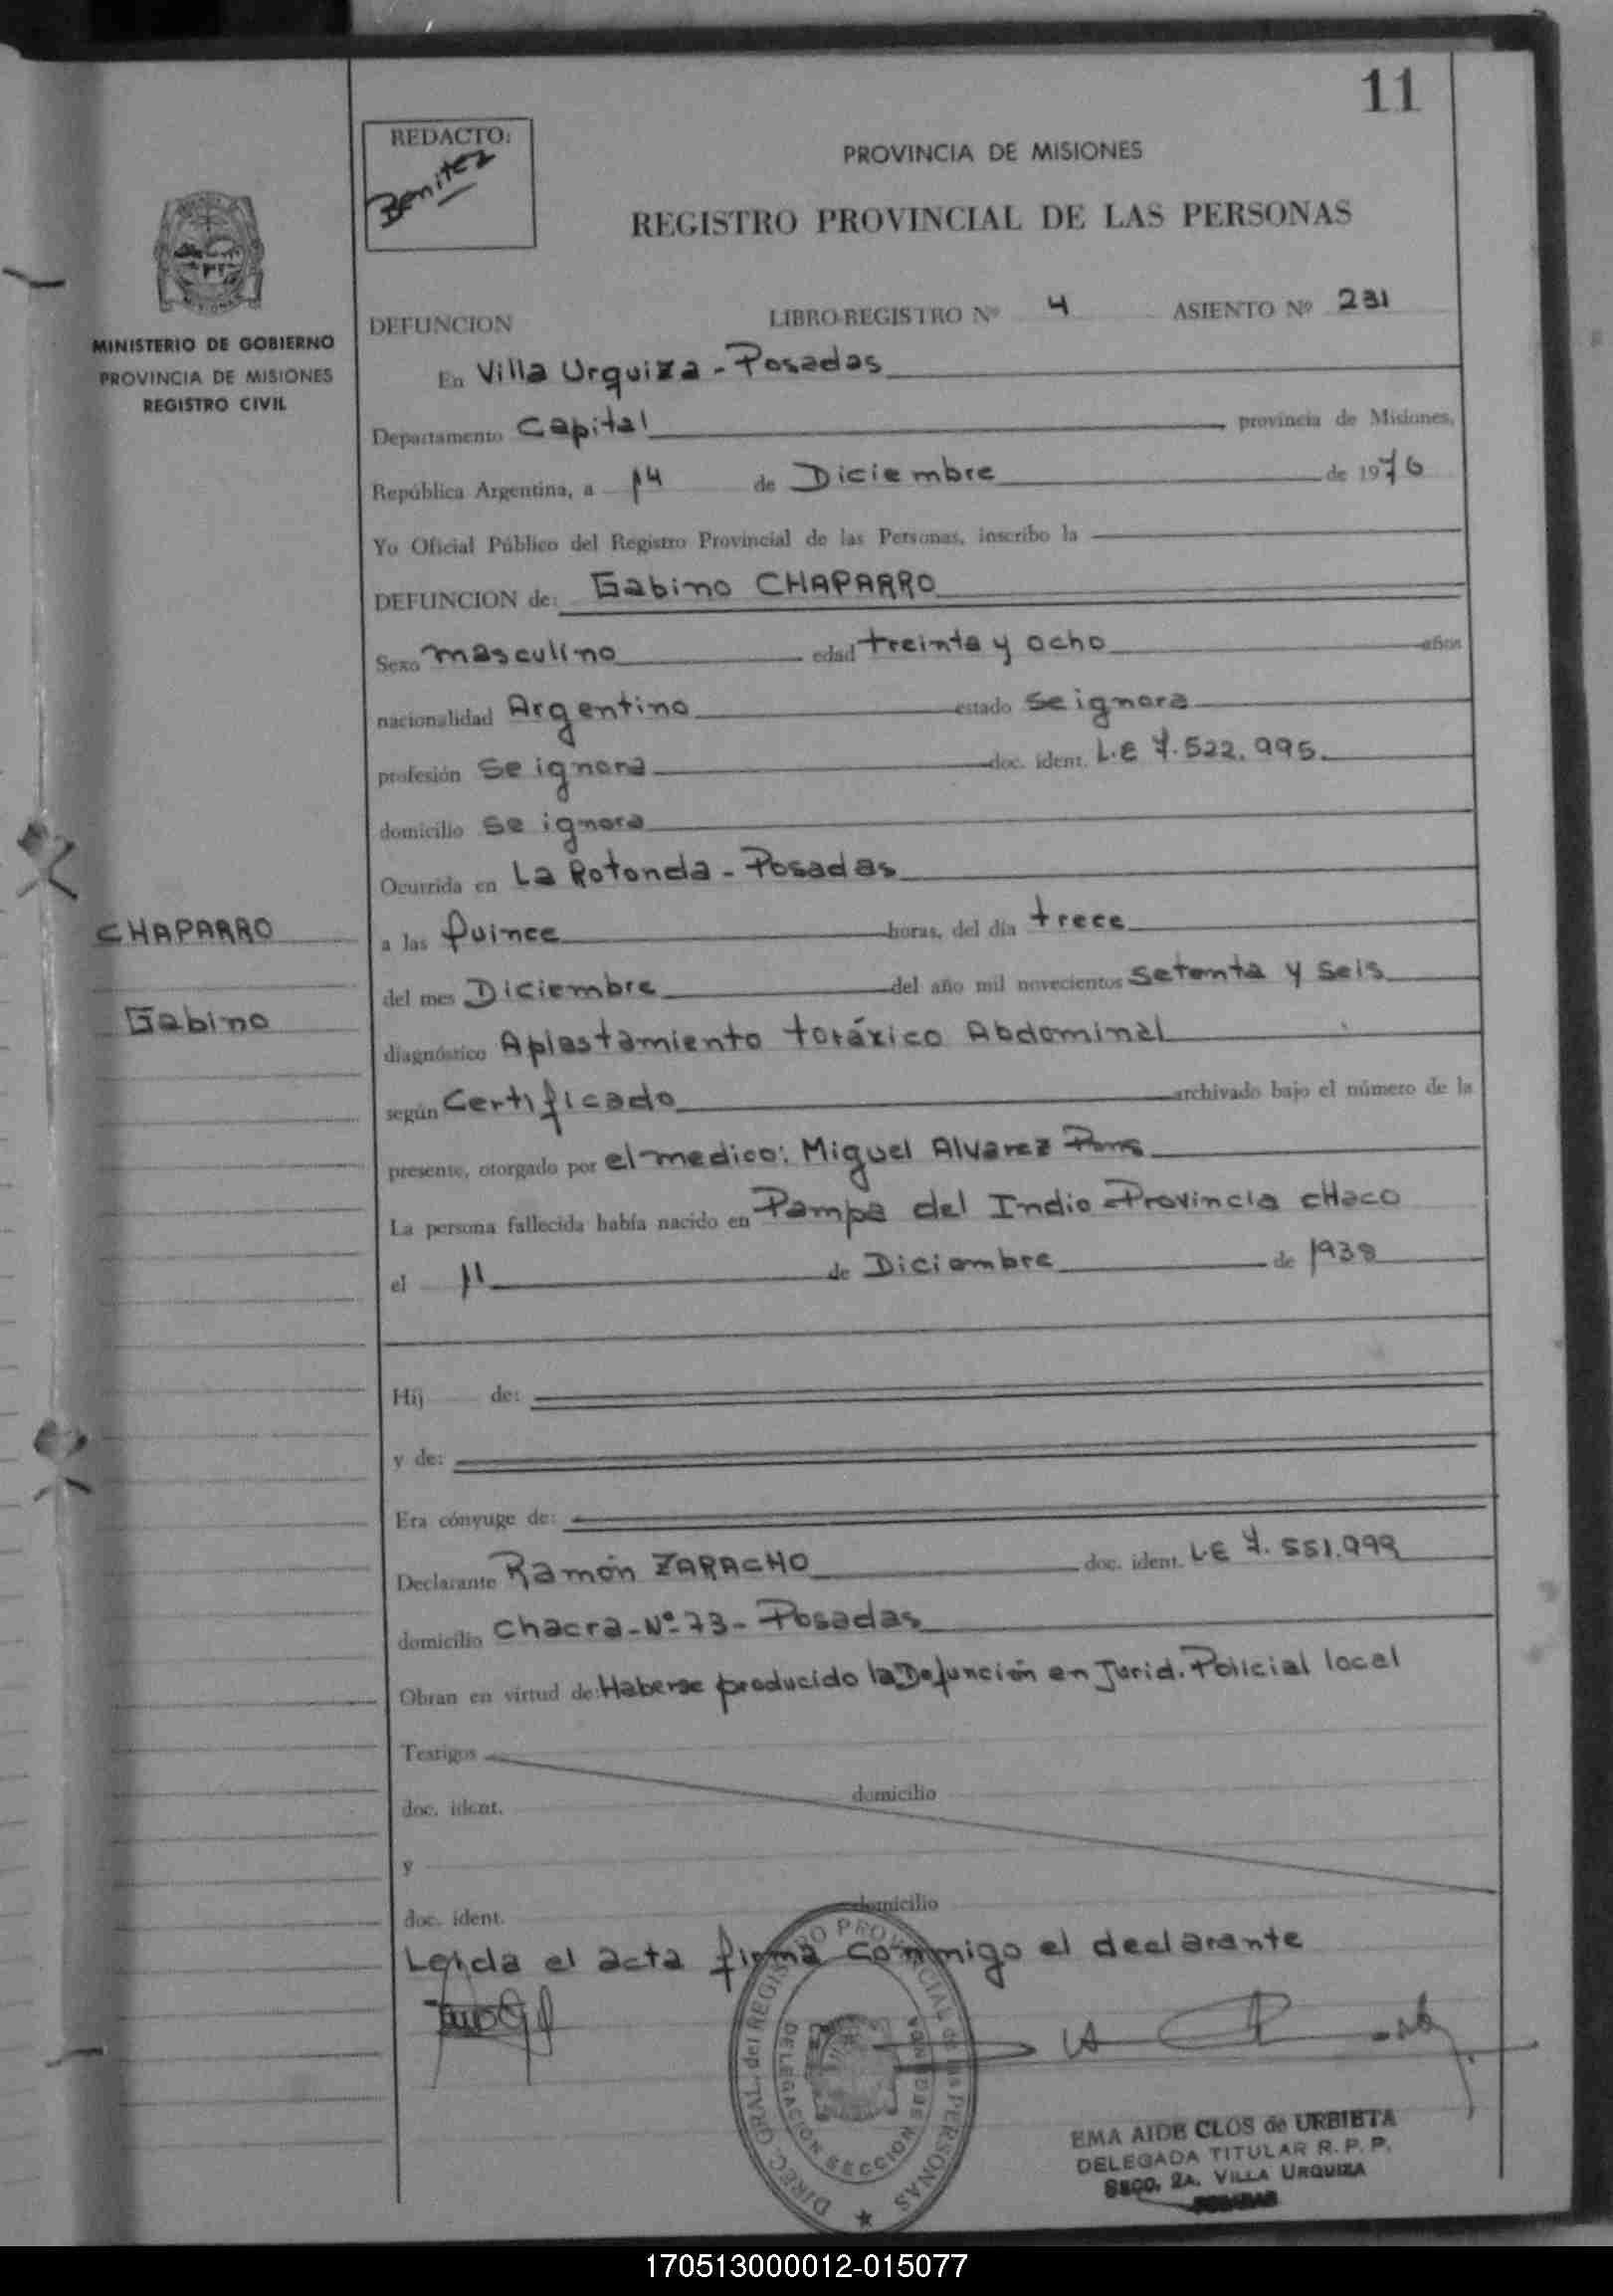 11
REDACTO:
Benitez
PROVINCIA DE MISIONES
REGISTRO PROVINCIAL DE LAS PERSONAS
MINISTERIO DE GOBIERNO
PROVINCIA DE MISIONES
REGISTRO CIVIL
DEFUNCION LIBRO-REGISTRO Nº 4 ASIENTO Nº 231
En Villa Urquiza - Posadas
Departamento Capital provincia de Misiones,
República Argentina, a 14 de Diciembre de 1976
Yo Oficial Público del Registro Provincial de las Personas, inscribo la
DEFUNCION de: Gabino CHAPARRO
Sexo masculino edad treinta y ocho años
nacionalidad Argentino estado se ignora
profesión se ignora doc. ident. L.E 7.522.995.
domicilio se ignora
Ocurrida en La Rotonda - Posadas
CHAPARRO
Gabino
a las Quince horas, del día trece
del mes Diciembre del año mil novecientos setenta y seis
diagnóstico Aplastamiento toráxico Abdominal
según Certificado archivado bajo el número de la
presente, otorgado por el medico: Miguel Alvarez Pons
La persona fallecida había nacido en Pampa del Indio - Provincia cHaco
el 11 de Diciembre de 1938
Hij de:
y de:
Era cónyuge de:
Declarante Ramón ZARACHO doc. ident. L.E 7.551.999
domicilio Chacra - Nº 73 - Posadas
Obran en virtud de: Haberse producido la Defunción en Jurid. Policial local
Testigos
doc. ident. domicilio
y
doc. ident. domicilio
Leida el acta firma conmigo el declarante
DIREC. GRAL. del REGISTRO PROVINCIAL de las PERSONAS
DELEGACION SECCION
EMA AIDE CLOS de URBIETA
DELEGADA TITULAR R. P. P.
SECC. 2A. VILLA URQUIZA
POSADAS
170513000012-015077